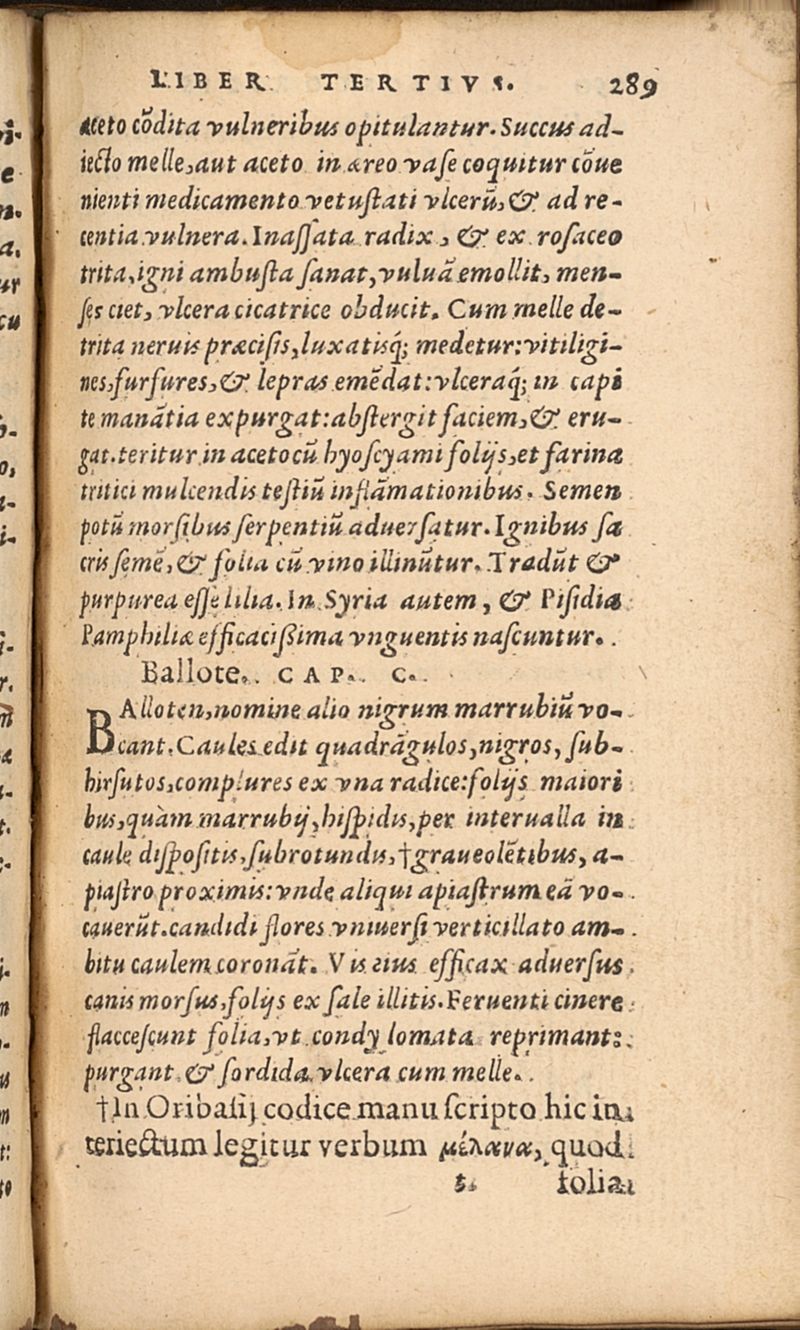 LIBER TERTIVS. 289
aceto cōdita vulneribus opitulantur. Succus ad-
iecto melle, aut aceto in æreo vase coquitur cōue
nienti medicamento vetustati vlcerū, & ad re-
centia vulnera. Inassata radix, & ex rosaceo
trita, igni ambusta sanat, vuluā emollit, men-
ses ciet, vlcera cicatrice obducit. Cum melle de-
trita neruis præcisis, luxatisq́; medetur: vitiligi-
nes, furfures, & lepras emēdat: vlceraq́; in capi
te manātia expurgat: abstergit faciem, & eru-
gat. teritur in aceto cū hyoscyami folijs, et farina
tritici mulcendis testiū inflāmationibus. Semen
potū morsibus serpentiū aduersatur. Ignibus sa
cris semē, & folia cū vino illinūtur. Tradūt &
purpurea esse lilia. In Syria autem, & Pisidia
Pamphilia efficacissima vnguentis nascuntur.
Ballote. CAP. C.
BAlloten, nomine alio nigrum marrubiū vo-
cant. Caules edit quadrāgulos, nigros, sub-
hirsutos, complures ex vna radice: folijs maiori
bus, quàm marrubij, hispidis, per interualla in
caule dispositis, subrotundis, †graueolētibus, a-
piastro proximis: vnde aliqui apiastrum eā vo-
cauerūt. candidi flores vniuersi verticillato am-
bitu caulem coronāt. Vis eius efficax aduersus
canis morsus, folijs ex sale illitis. Feruenti cinere
flaccescunt folia, vt condylomata reprimant:
purgant & sordida vlcera cum melle.
†In Oribasij codice manu scripto hic in
teriectum legitur verbum μέλανα, quod
t. folia